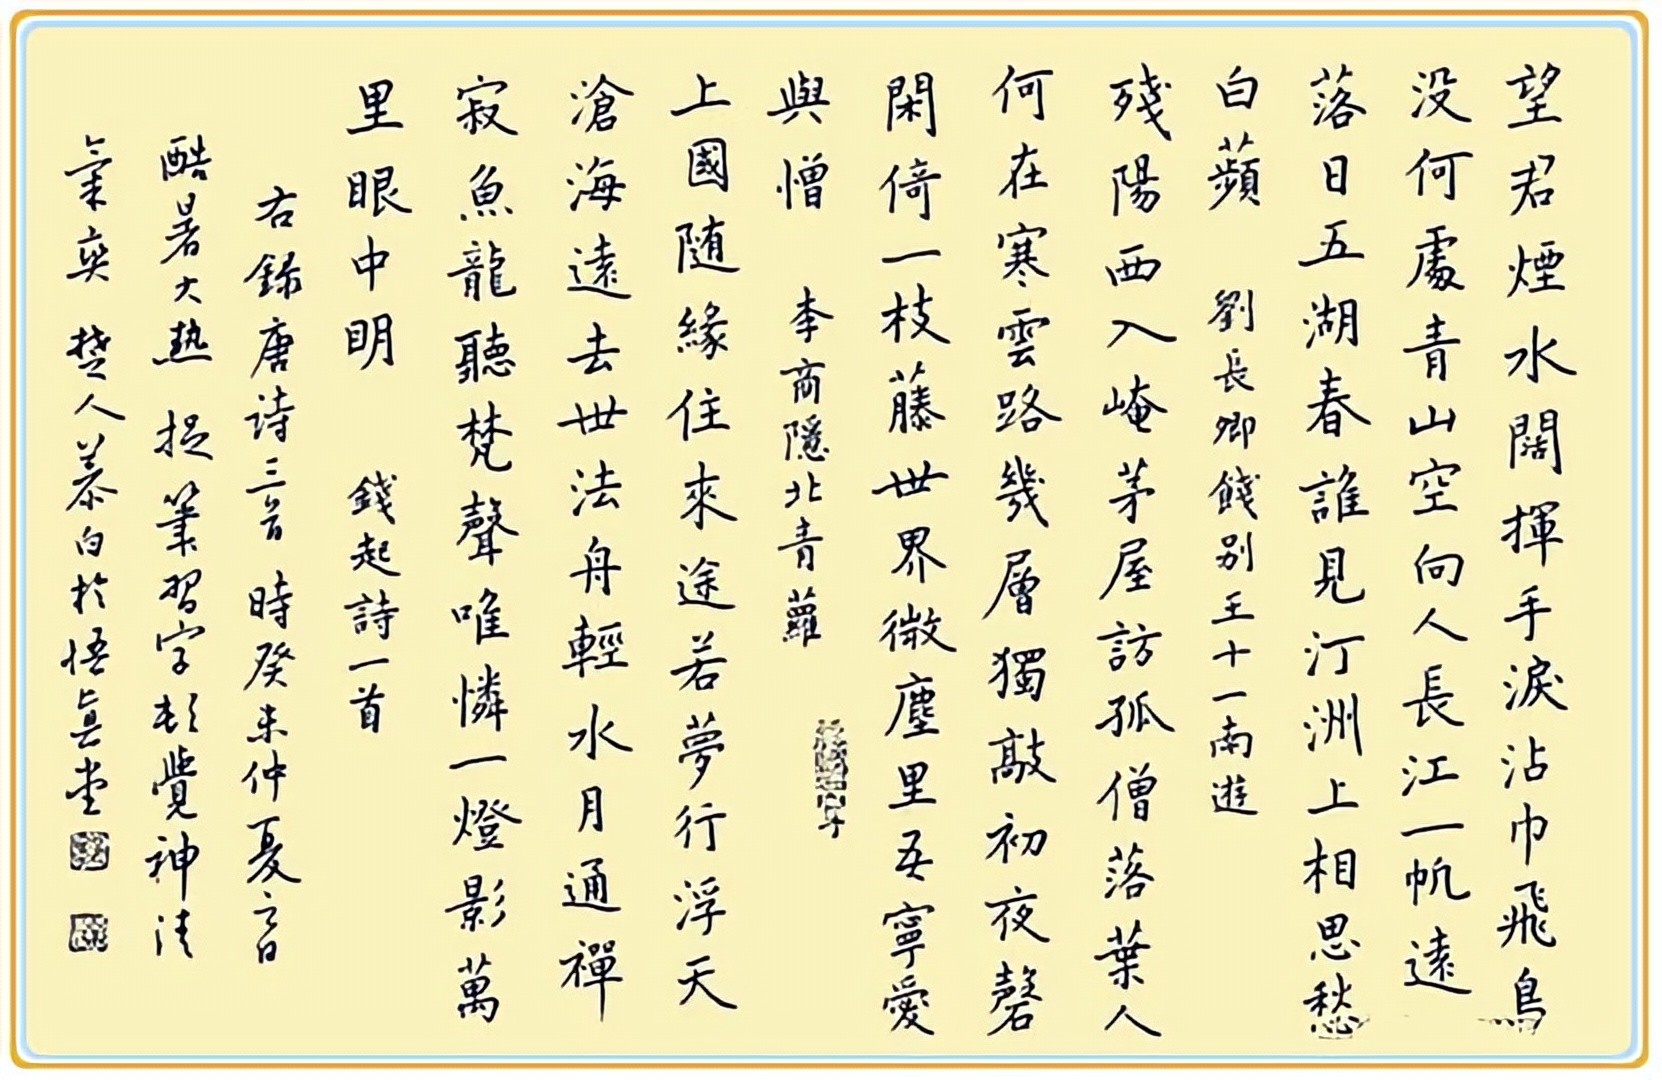 望君煙水闊揮手淚沾巾飛鳥
没何處青山空向人長江一帆遠
落日五湖春誰見汀洲上相思愁
白蘋 劉長卿餞别王十一南遊
殘陽西入崦茅屋訪孤僧落葉人
何在寒雲路幾層獨敲初夜磬
閑倚一枝藤世界微塵里吾寧愛
與憎 李商隱北青蘿
上國随緣住來途若夢行浮天
滄海遠去世法舟輕水月通禪
寂魚龍聽梵聲唯憐一燈影萬
里眼中明 錢起詩一首
右録唐诗三首 時癸未仲夏之日
酷暑大熱 提筆習字頓覺神清
氣爽 楚人慕白於悟真堂